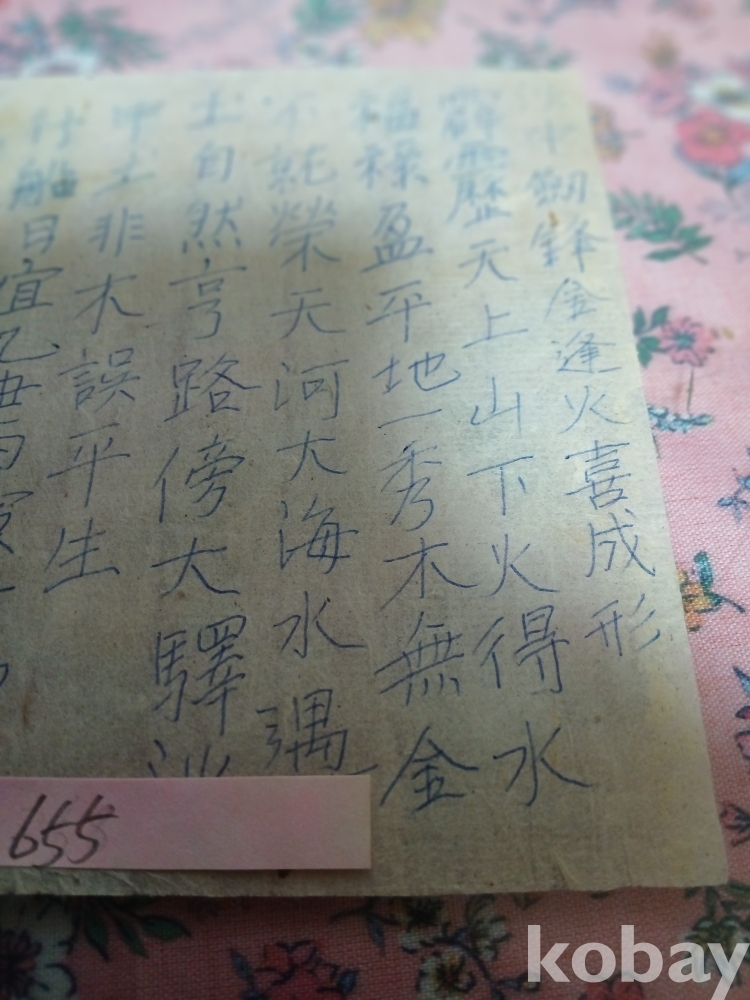 中劒鋒金逢火喜成形
霹靂天上山下火得水
福祿盈平地一秀木無金
不就榮天河大海水遇
土自然亨路傍大驛
中土非木誤平生
行船日宜乙
655
kobay